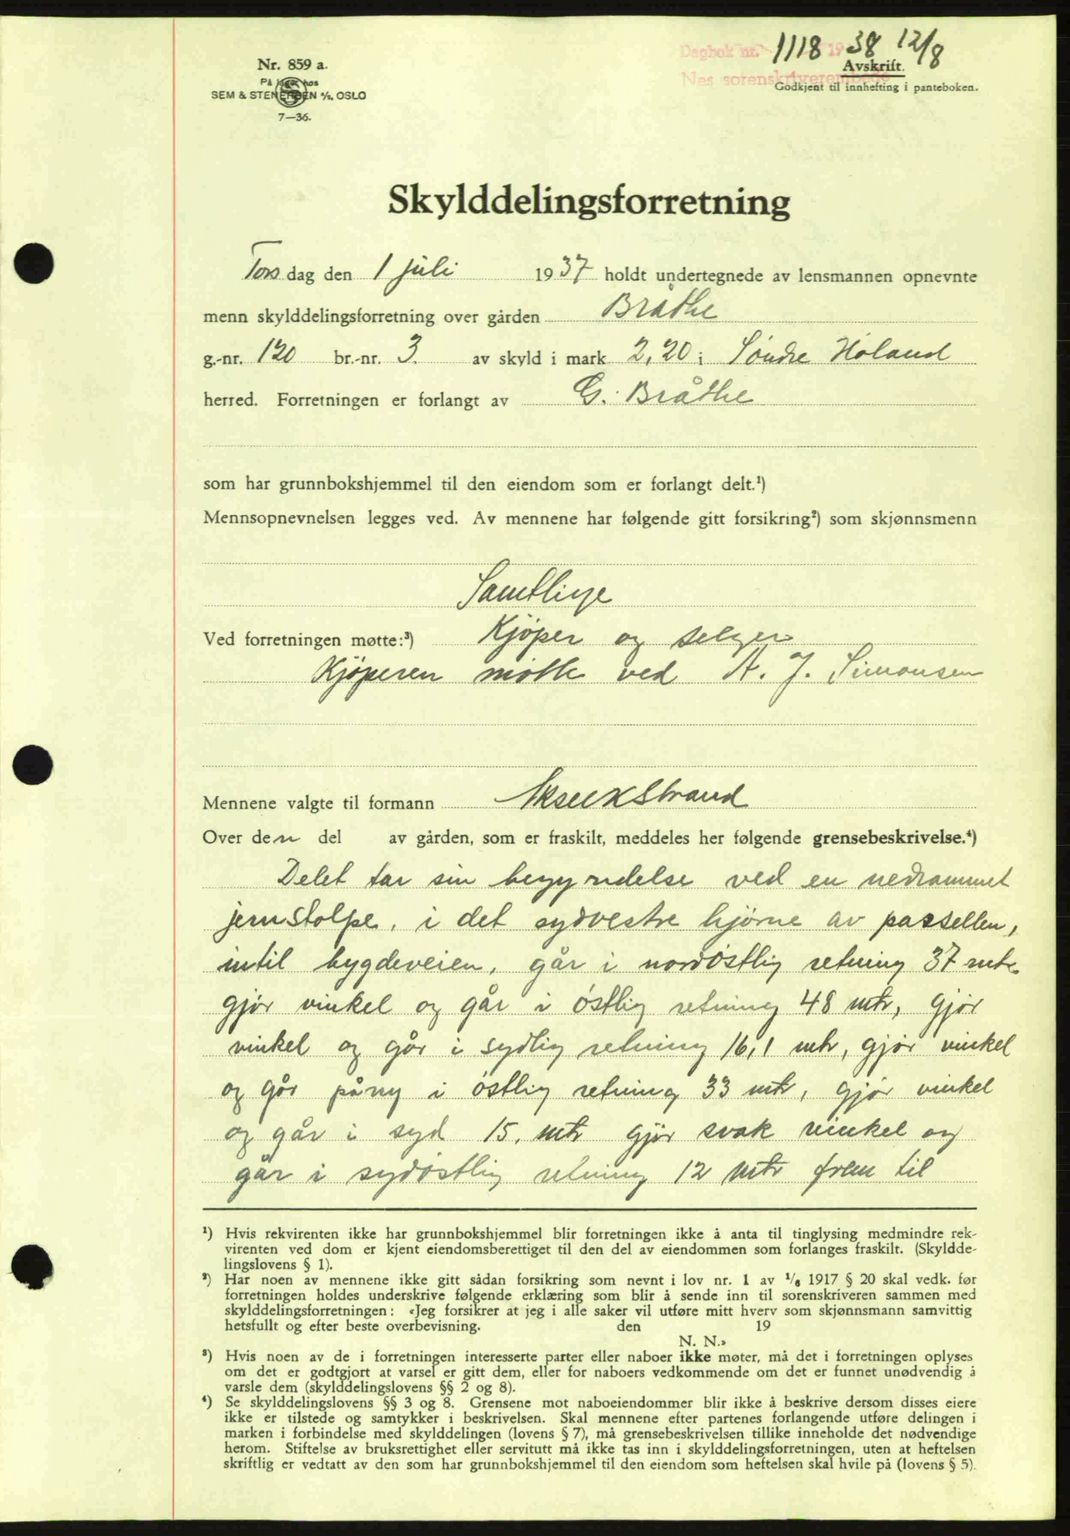 Nr. 859 a.
På lager hos
SEM & STENERSEN A/S, OSLO
7—36.
Dagbok nr. 1118 1938 12/8
Nes sorenskriverembede
Avskrift.
Godkjent til innhefting i panteboken.
Skylddelingsforretning
Torsdag den 1 juli 1937 holdt undertegnede av lensmannen opnevnte
menn skylddelingsforretning over gården Bråthe
g.-nr. 120 br.-nr. 3 av skyld i mark 2,20 i Söndre Höland
herred. Forretningen er forlangt av G. Bråthe
som har grunnbokshjemmel til den eiendom som er forlangt delt.¹)
Mennsopnevnelsen legges ved. Av mennene har følgende gitt forsikring²) som skjønnsmenn
Samtlige
Ved forretningen møtte:³) Kjöper og selger
Kjöperen mötte ved A. J. Simonsen
Mennene valgte til formann Strand
Over den del av gården, som er fraskilt, meddeles her følgende grensebeskrivelse.⁴)
Delet tar sin begyndelse ved en nedrammet
jernstolpe, i det sydvestre hjörne av passellen,
intil bygdeveien, går i nordöstlig retning 37 mtr.
gjör vinkel og går i östlig retning 48 mtr, gjör
vinkel og går i sydlig retning 16,1 mtr, gjör vinkel
og går påny i östlig retning 33 mtr, gjör vinkel
og går i syd 15. mtr gjör svak vinkel og
går i sydöstlig retning 12 mtr frem til
¹) Hvis rekvirenten ikke har grunnbokshjemmel blir forretningen ikke å anta til tinglysing medmindre rek-
virenten ved dom er kjent eiendomsberettiget til den del av eiendommen som forlanges fraskilt. (Skyldde-
lingslovens § 1).
²) Har noen av mennene ikke gitt sådan forsikring som nevnt i lov nr. 1 av 1/6 1917 § 20 skal vedk. før
forretningen holdes underskrive følgende erklæring som blir å sende inn til sorenskriveren sammen med
skylddelingsforretningen: «Jeg forsikrer at jeg i alle saker vil utføre mitt hverv som skjønnsmann samvittig
hetsfullt og efter beste overbevisning. den 19
N. N.»
³) Hvis noen av de i forretningen interesserte parter eller naboer ikke møter, må det i forretningen oplyses
om det er godtgjort at varsel er gitt dem, eller for naboers vedkommende om det er funnet unødvendig å
varsle dem (skylddelingslovens §§ 2 og 8).
⁴) Se skylddelingslovens §§ 3 og 8. Grensene mot naboeiendommer blir ikke å beskrive dersom disses eiere
ikke er tilstede og samtykker i beskrivelsen. Skal mennene efter partenes forlangende utføre delingen i
marken i forbindelse med skylddelingen (lovens § 7), må grensebeskrivelsen tillike inneholde det nødvendige
herom. Stiftelse av bruksrettighet eller servitutt må ikke tas inn i skylddelingsforretningen, uten at heftelsen
skriftlig er vedtatt av den som har grunnbokshjemmel til den eiendom som heftelsen skal hvile på (lovens § 5).